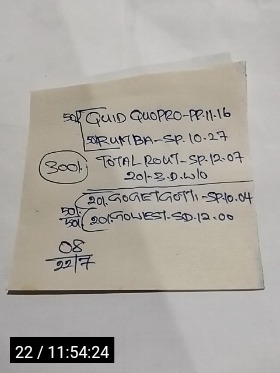 50/ QUID QUOPRO-PP.11.16
50/ RUMBA-SP.10.27
300/. TOTAL ROUT-SP.12.07
20/-S.D.W/O
50/. 20/. GOGETGOTTI-SP.10.04
50/ 20/. GOWEST-SD.12.00
08
22/7
22 / 11:54:24